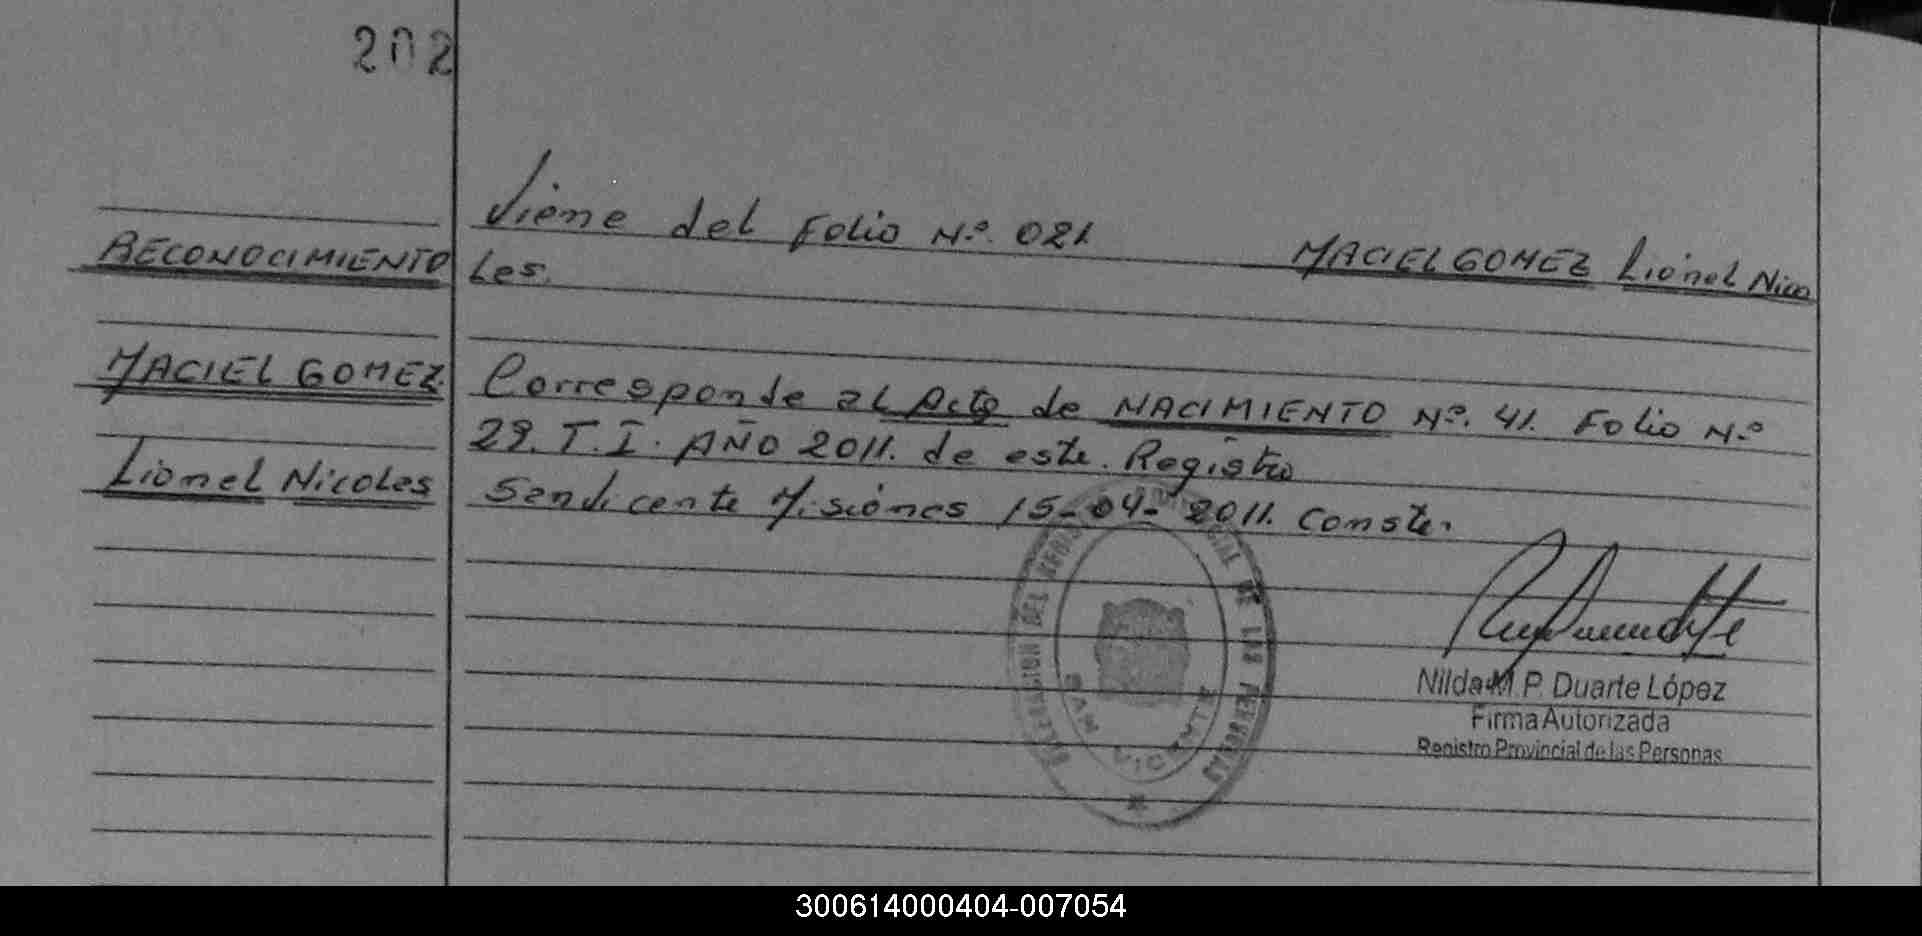 202
Viene del Folio Nº. 021. MACIEL GOMEZ Lionel Nico
RECONOCIMIENTO
Les.
MACIEL GOMEZ.
Corresponde al Acto de NACIMIENTO Nº. 41. Folio Nº
29. T. I. AÑO 2011. de este. Registro
Lionel Nicoles
Sandicente Misiones 15-04-2011. Conste.
DELEGACION DEL REGIS IAL DE LAS PERSONAS
SAN VICENTE
Nilda M. P. Duarte López
Firma Autorizada
Registro Provincial de las Personas
300614000404-007054